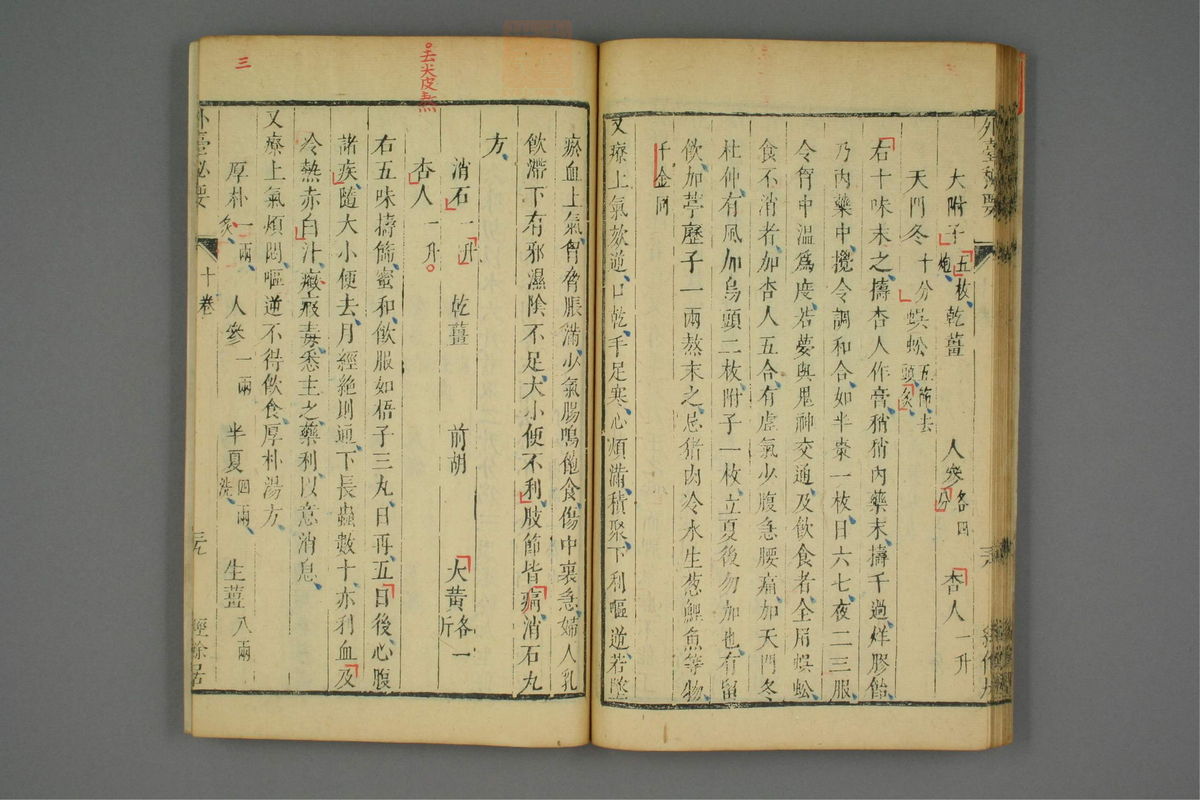 外臺秘要
大附子五枚炮 乾薑 人參各四分 杏人一升
天門冬十分 蜈蚣五節去頭炙
右十味末之擣杏人作膏稍稍內藥末擣千過烊膠飴
乃內藥中攪令調和合如半棗一枚日六七夜二三服
令胷中溫爲度若夢與鬼神交通及飲食者全用蜈蚣
食不消者加杏人五合有虛氣少腹急腰痛加天門冬
杜仲有風加烏頭二枚附子一枚立夏後勿加也有留
飲加葶藶子一兩熬末之忌猪肉冷水生葱鯉魚等物
千金同
又療上氣欬逆口乾手足寒心煩滿積聚下利嘔逆若墜
瘀血上氣胷脅脹滿少氣腸鳴飽食傷中裏急婦人乳
飲滯下有邪濕陰不足大小便不利肢節皆痛消石丸
方
消石一升 乾薑 前胡 大黃各一斤
杏人一升
去尖皮熬
右五味擣篩蜜和飲服如梧子三丸日再五日後心腹
諸疾隨大小便去月經絕則通下長蟲數十亦利血及
冷熱赤白汁癥瘕毒悉主之藥利以意消息
又療上氣煩悶嘔逆不得飲食厚朴湯方
厚朴一兩炙 人參一兩 半夏四兩洗 生薑八兩
三
外臺秘要 十卷 三九 經餘居